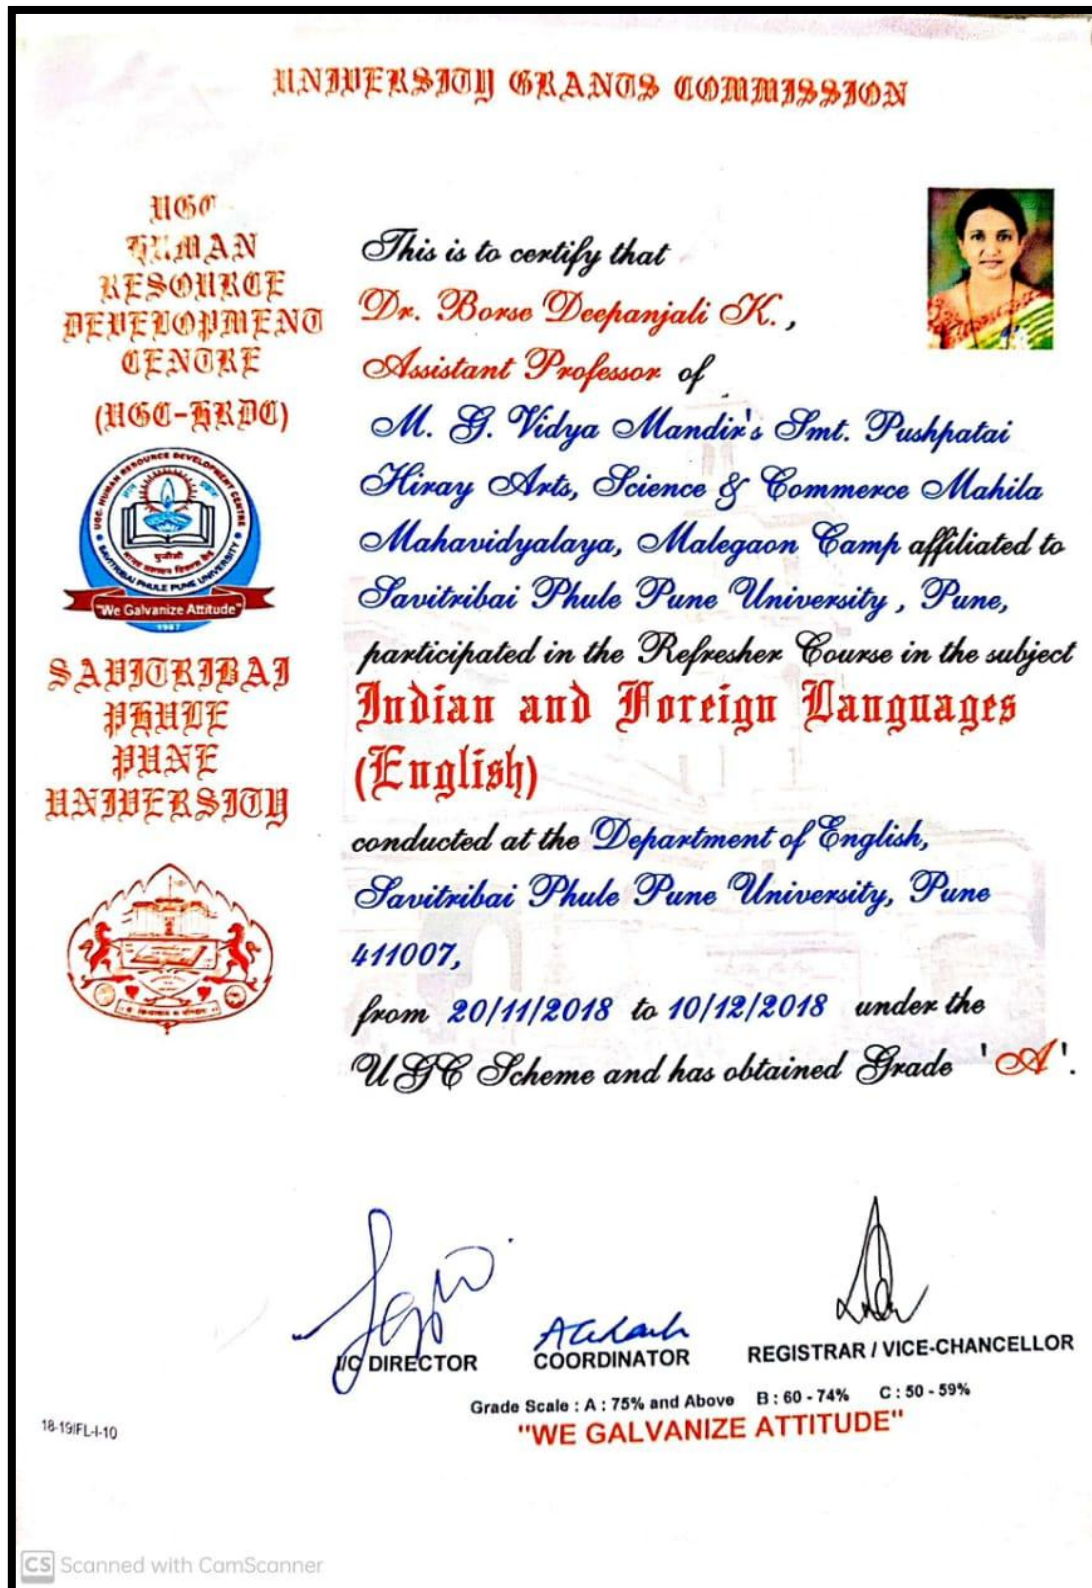 UNIVERSITY GRANTS COMMISSION
UGC
HUMAN
RESOURCE
DEVELOPMENT
CENTRE
(UGC-HRDC)
UGC-HUMAN RESOURCE DEVELOPMENT CENTRE
SAVITRIBAI PHULE PUNE UNIVERSITY
"We Galvanize Attitude"
1987
SAVITRIBAI
PHULE
PUNE
UNIVERSITY
This is to certify that
Dr. Borse Deepanjali K.,
Assistant Professor of
M. G. Vidya Mandir's Smt. Pushpatai
Hiray Arts, Science & Commerce Mahila
Mahavidyalaya, Malegaon Camp affiliated to
Savitribai Phule Pune University, Pune,
participated in the Refresher Course in the subject
Indian and Foreign Languages
(English)
conducted at the Department of English,
Savitribai Phule Pune University, Pune
411007,
from 20/11/2018 to 10/12/2018 under the
UGC Scheme and has obtained Grade 'A'.
I/C DIRECTOR
COORDINATOR
REGISTRAR / VICE-CHANCELLOR
Grade Scale : A : 75% and Above B : 60 - 74% C : 50 - 59%
"WE GALVANIZE ATTITUDE"
18-19/FL-I-10
CS Scanned with CamScanner